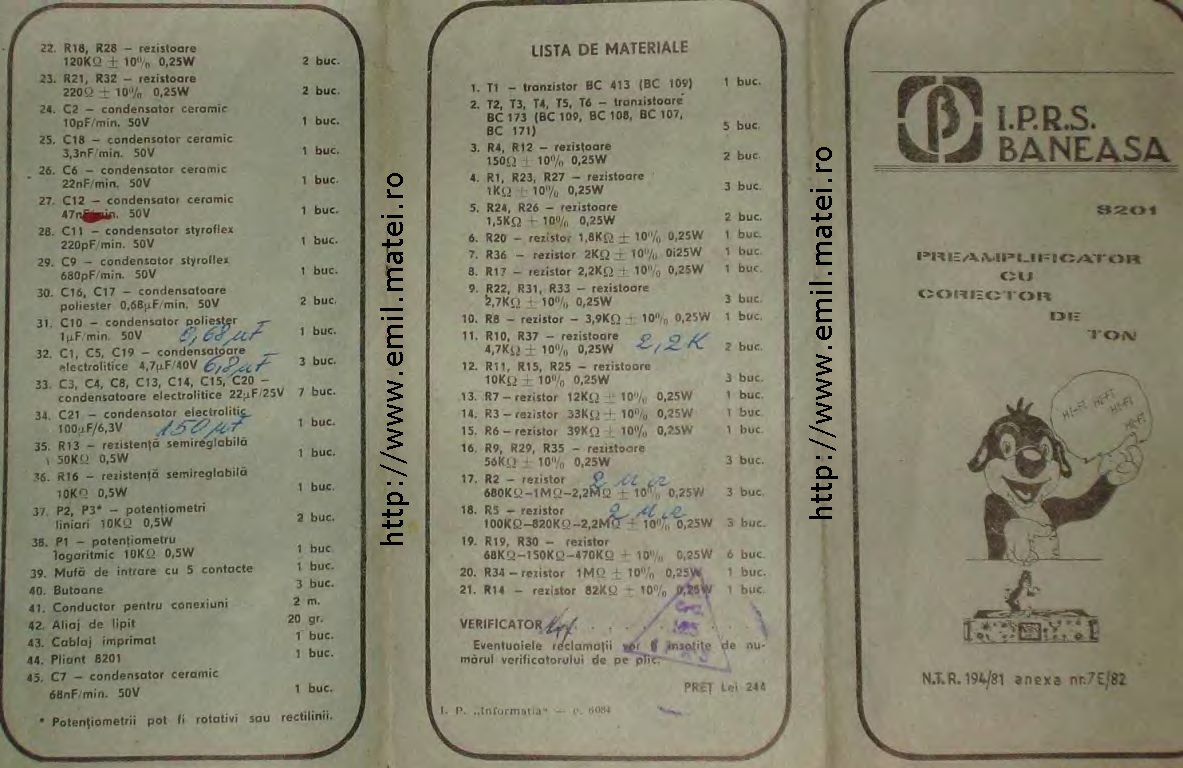 22. R18, R28 – rezistoare
120KΩ ± 10% 0,25W 2 buc.
23. R21, R32 – rezistoare
220Ω ± 10% 0,25W 2 buc.
24. C2 – condensator ceramic
10pF/min. 50V 1 buc.
25. C18 – condensator ceramic
3,3nF/min. 50V 1 buc.
26. C6 – condensator ceramic
22nF/min. 50V 1 buc.
27. C12 – condensator ceramic
47nF/min. 50V 1 buc.
28. C11 – condensator styroflex
220pF/min. 50V 1 buc.
29. C9 – condensator styroflex
680pF/min. 50V 1 buc.
30. C16, C17 – condensatoare
poliester 0,68µF/min. 50V 2 buc.
31. C10 – condensator poliester
1µF/min. 50V 0,68µF 1 buc.
32. C1, C5, C19 – condensatoare
electrolitice 4,7µF/40V 6,8µF 3 buc.
33. C3, C4, C8, C13, C14, C15, C20 –
condensatoare electrolitice 22µF/25V 7 buc.
34. C21 – condensator electrolitic
100µF/6,3V 150µF 1 buc.
35. R13 – rezistență semireglabilă
50KΩ 0,5W 1 buc.
36. R16 – rezistență semireglabilă
10KΩ 0,5W 1 buc.
37. P2, P3* – potențiometri
liniari 10KΩ 0,5W 2 buc.
38. P1 – potențiometru
logaritmic 10KΩ 0,5W 1 buc.
39. Mufă de intrare cu 5 contacte 1 buc.
40. Butoane 3 buc.
41. Conductor pentru conexiuni 2 m.
42. Aliaj de lipit 20 gr.
43. Cablaj imprimat 1 buc.
44. Pliant 8201 1 buc.
45. C7 – condensator ceramic
68nF/min. 50V 1 buc.
* Potențiometrii pot fi rotativi sau rectilinii.
http://www.emil.matei.ro
LISTA DE MATERIALE
1. T1 – tranzistor BC 413 (BC 109) 1 buc.
2. T2, T3, T4, T5, T6 – tranzistoare
BC 173 (BC 109, BC 108, BC 107,
BC 171) 5 buc.
3. R4, R12 – rezistoare
150Ω ± 10% 0,25W 2 buc.
4. R1, R23, R27 – rezistoare
1KΩ ± 10% 0,25W 3 buc.
5. R24, R26 – rezistoare
1,5KΩ ± 10% 0,25W 2 buc.
6. R20 – rezistor 1,8KΩ ± 10% 0,25W 1 buc.
7. R36 – rezistor 2KΩ ± 10% 0i25W 1 buc.
8. R17 – rezistor 2,2KΩ ± 10% 0,25W 1 buc.
9. R22, R31, R33 – rezistoare
2,7KΩ ± 10% 0,25W 3 buc.
10. R8 – rezistor – 3,9KΩ ± 10% 0,25W 1 buc.
11. R10, R37 – rezistoare
4,7KΩ ± 10% 0,25W 2,2K 2 buc.
12. R11, R15, R25 – rezistoare
10KΩ ± 10% 0,25W 3 buc.
13. R7 – rezistor 12KΩ ± 10% 0,25W 1 buc.
14. R3 – rezistor 33KΩ ± 10% 0,25W 1 buc.
15. R6 – rezistor 39KΩ ± 10% 0,25W 1 buc.
16. R9, R29, R35 – rezistoare
56KΩ ± 10% 0,25W 3 buc.
17. R2 – rezistor
680KΩ–1MΩ–2,2MΩ ± 10% 0,25W 3 buc.
18. R5 – rezistor
100KΩ–820KΩ–2,2MΩ ± 10% 0,25W 3 buc.
19. R19, R30 – rezistor
68KΩ–150KΩ–470KΩ ± 10% 0,25W 6 buc.
20. R34 – rezistor 1MΩ ± 10% 0,25W 1 buc.
21. R14 – rezistor 82KΩ ± 10% 0,25W 1 buc.
VERIFICATOR
Eventualele reclamații vor fi însoțite de nu-
mărul verificatorului de pe plic.
PREȚ Lei 244
I. P. „Informația“ – c. 6084
http://www.emil.matei.ro
I.P.R.S.
BANEASA
8201
PREAMPLIFICATOR
CU
CORECTOR
DE
TON
HI-FI HI-FI
HI-FI
HI-FI
N.T.R. 194/81 anexa nr.7E/82